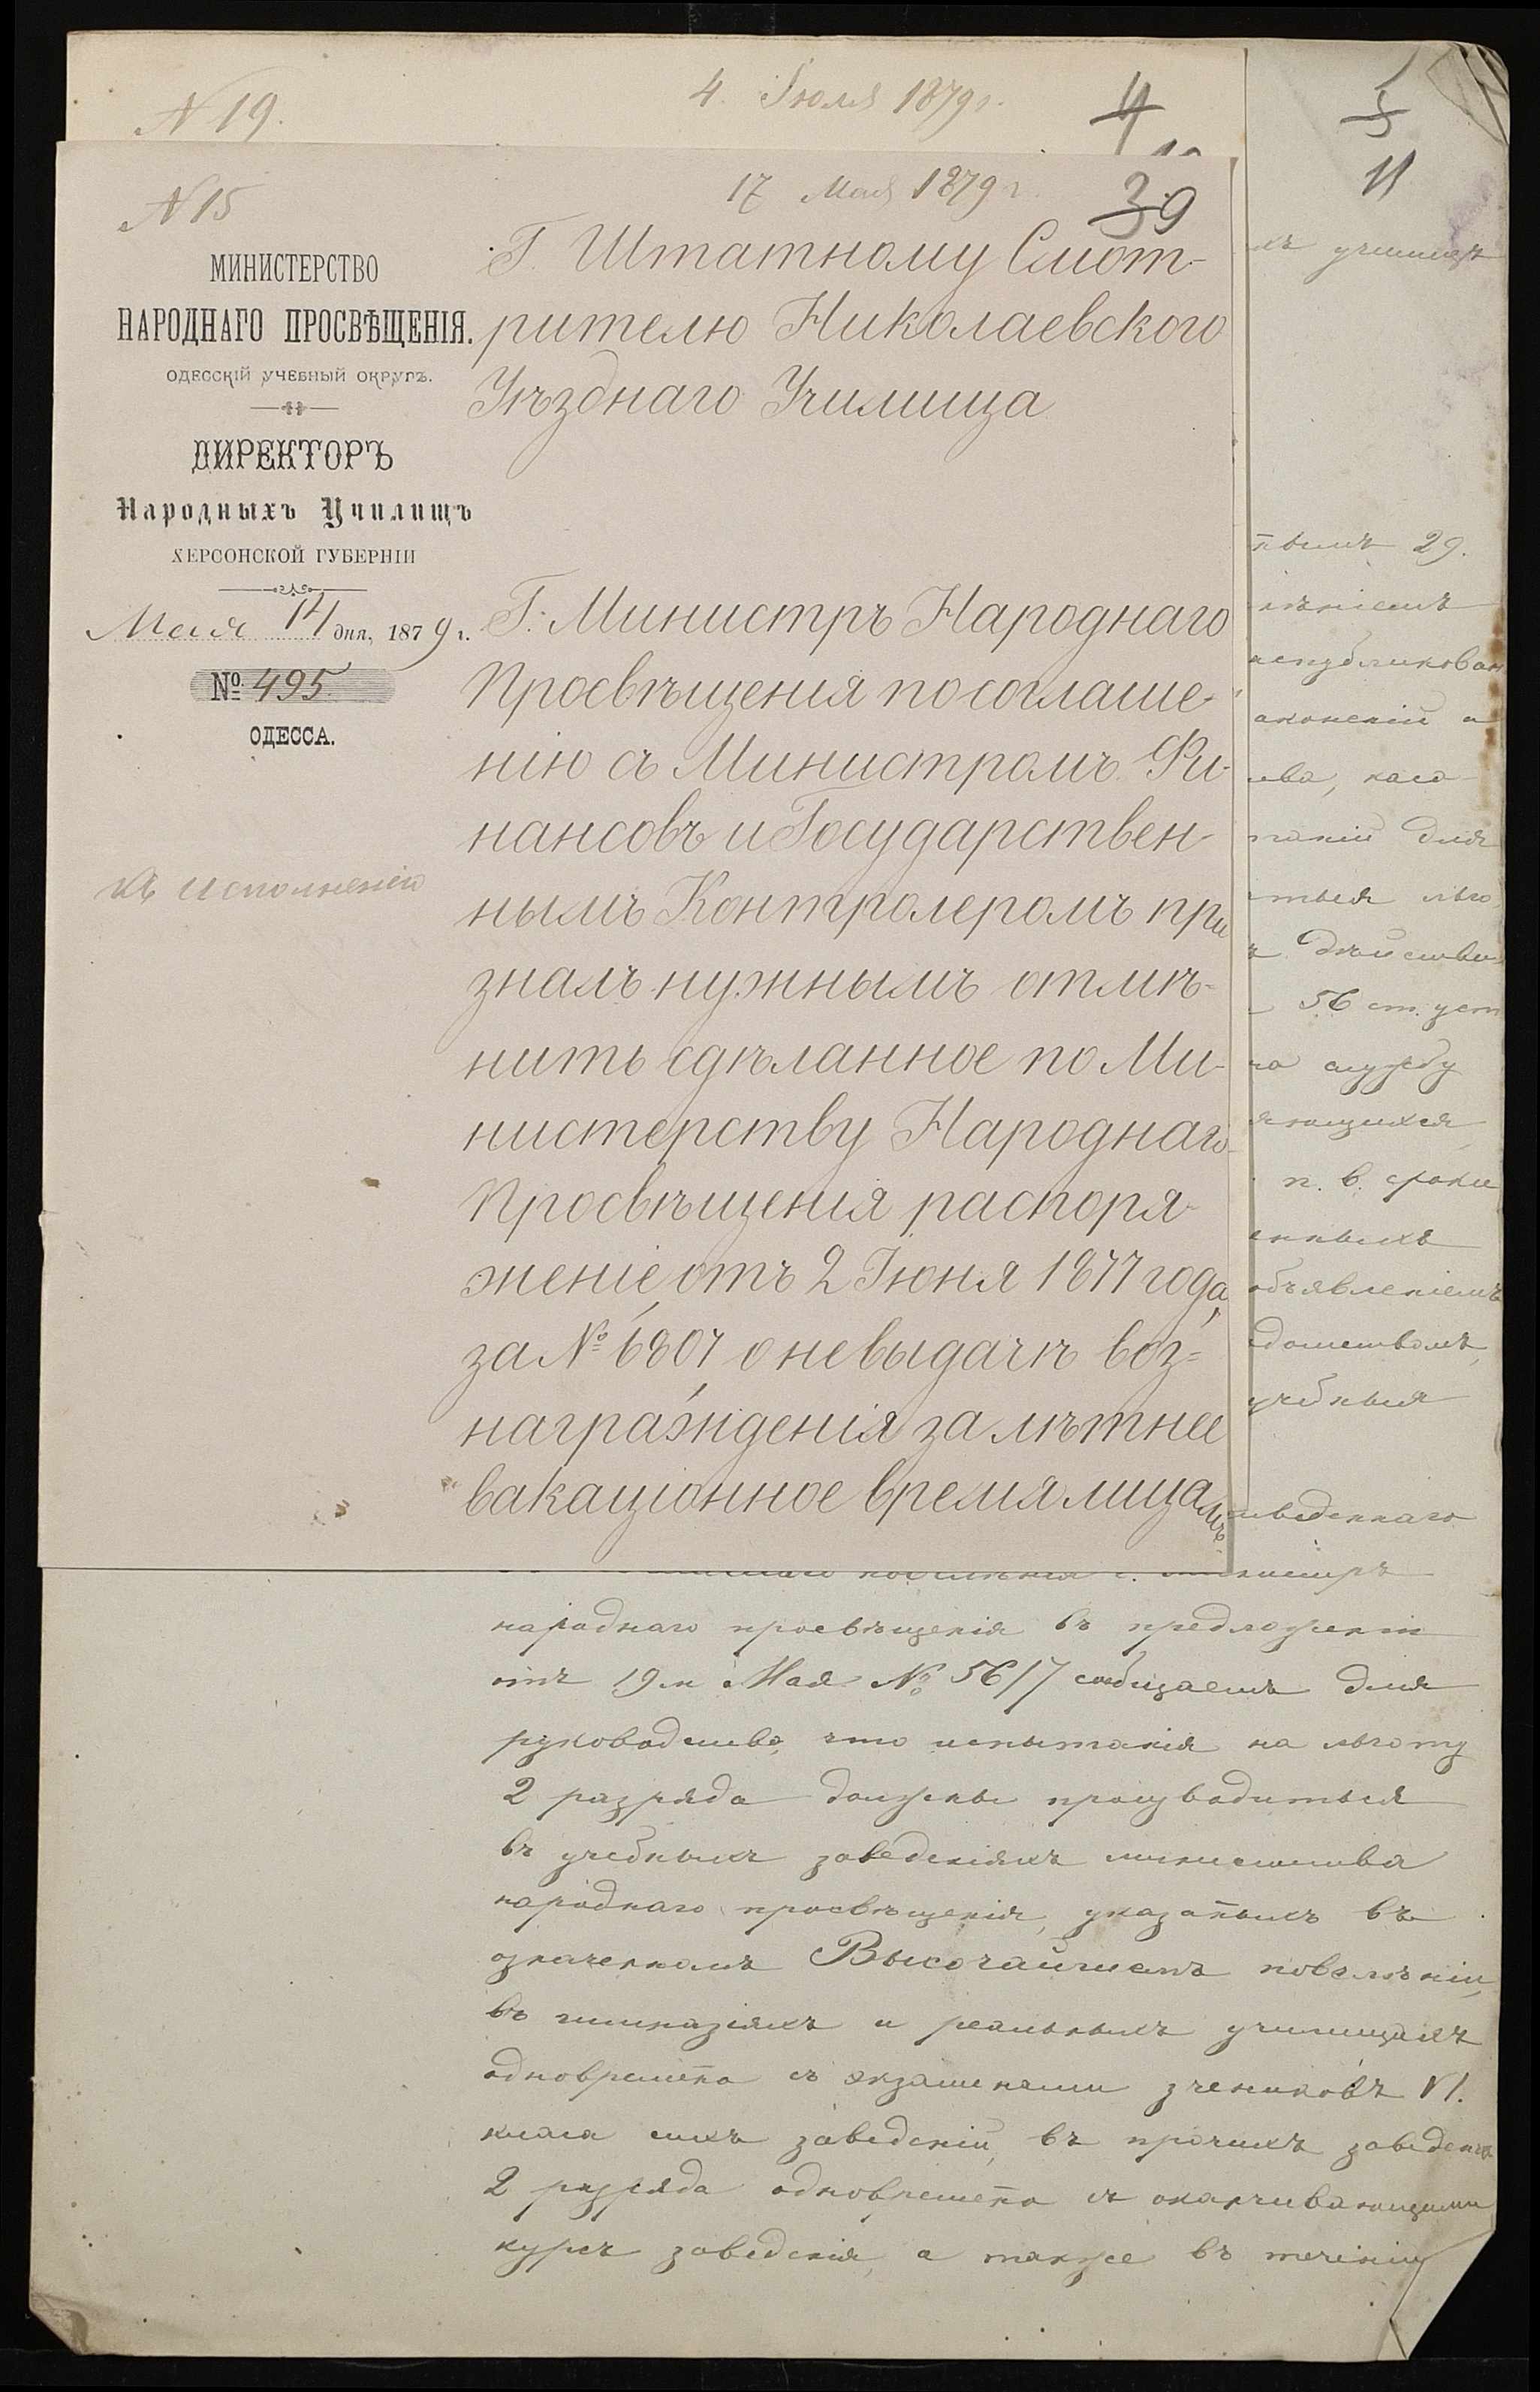 N 19.
4. Июля 1879 г.
4
5
11
N 15
17 Мая 1879 г.
39
МИНИСТЕРСТВО
НАРОДНАГО ПРОСВѢЩЕНІЯ.
ОДЕССКІЙ УЧЕБНЫЙ ОКРУГЪ.
ДИРЕКТОРЪ
Народныхъ Училищъ
ХЕРСОНСКОЙ ГУБЕРНІИ
Мая 14 дня, 1879 г.
№ 495
ОДЕССА.
къ исполненію
Г. Штатному Смот-
рителю Николаевского
Уѣзднаго Училища
Г. Министръ Народнаго
Просвѣщенія по соглаше-
нію съ Министромъ Фи-
нансовъ и Государствен-
нымъ Контролеромъ при
зналъ нужнымъ отмѣ-
нить сдѣланное по Ми-
нистерству Народнаго
Просвѣщенія распоря-
женіе, отъ 2 Іюня 1877 года,
за № 6807, о невыдачѣ воз-
награжденія за лѣтнее
вакаціонное время лицамъ
29.
испубликован
для
56 ст. уст
службу
п. в. сроки
объявленіемъ
учебныя
народнаго просвѣщенія въ предложеніи
отъ 19 Мая № 5617 сообщаетъ для
руководства, что испытанія на льготу
2 разряда должны производиться
въ учебныхъ заведеніяхъ министества
народнаго просвѣщенія, указаныхъ въ
означенномъ Высочайшемъ повелѣніи,
въ гимназіяхъ и реальныхъ училищахъ
одновремено съ экзаменами учениковъ VI.
класа сихъ заведеній, въ прочихъ заведен
2 разряда одновремено съ оканчивающими
курсъ заведенія, а также въ теченіи